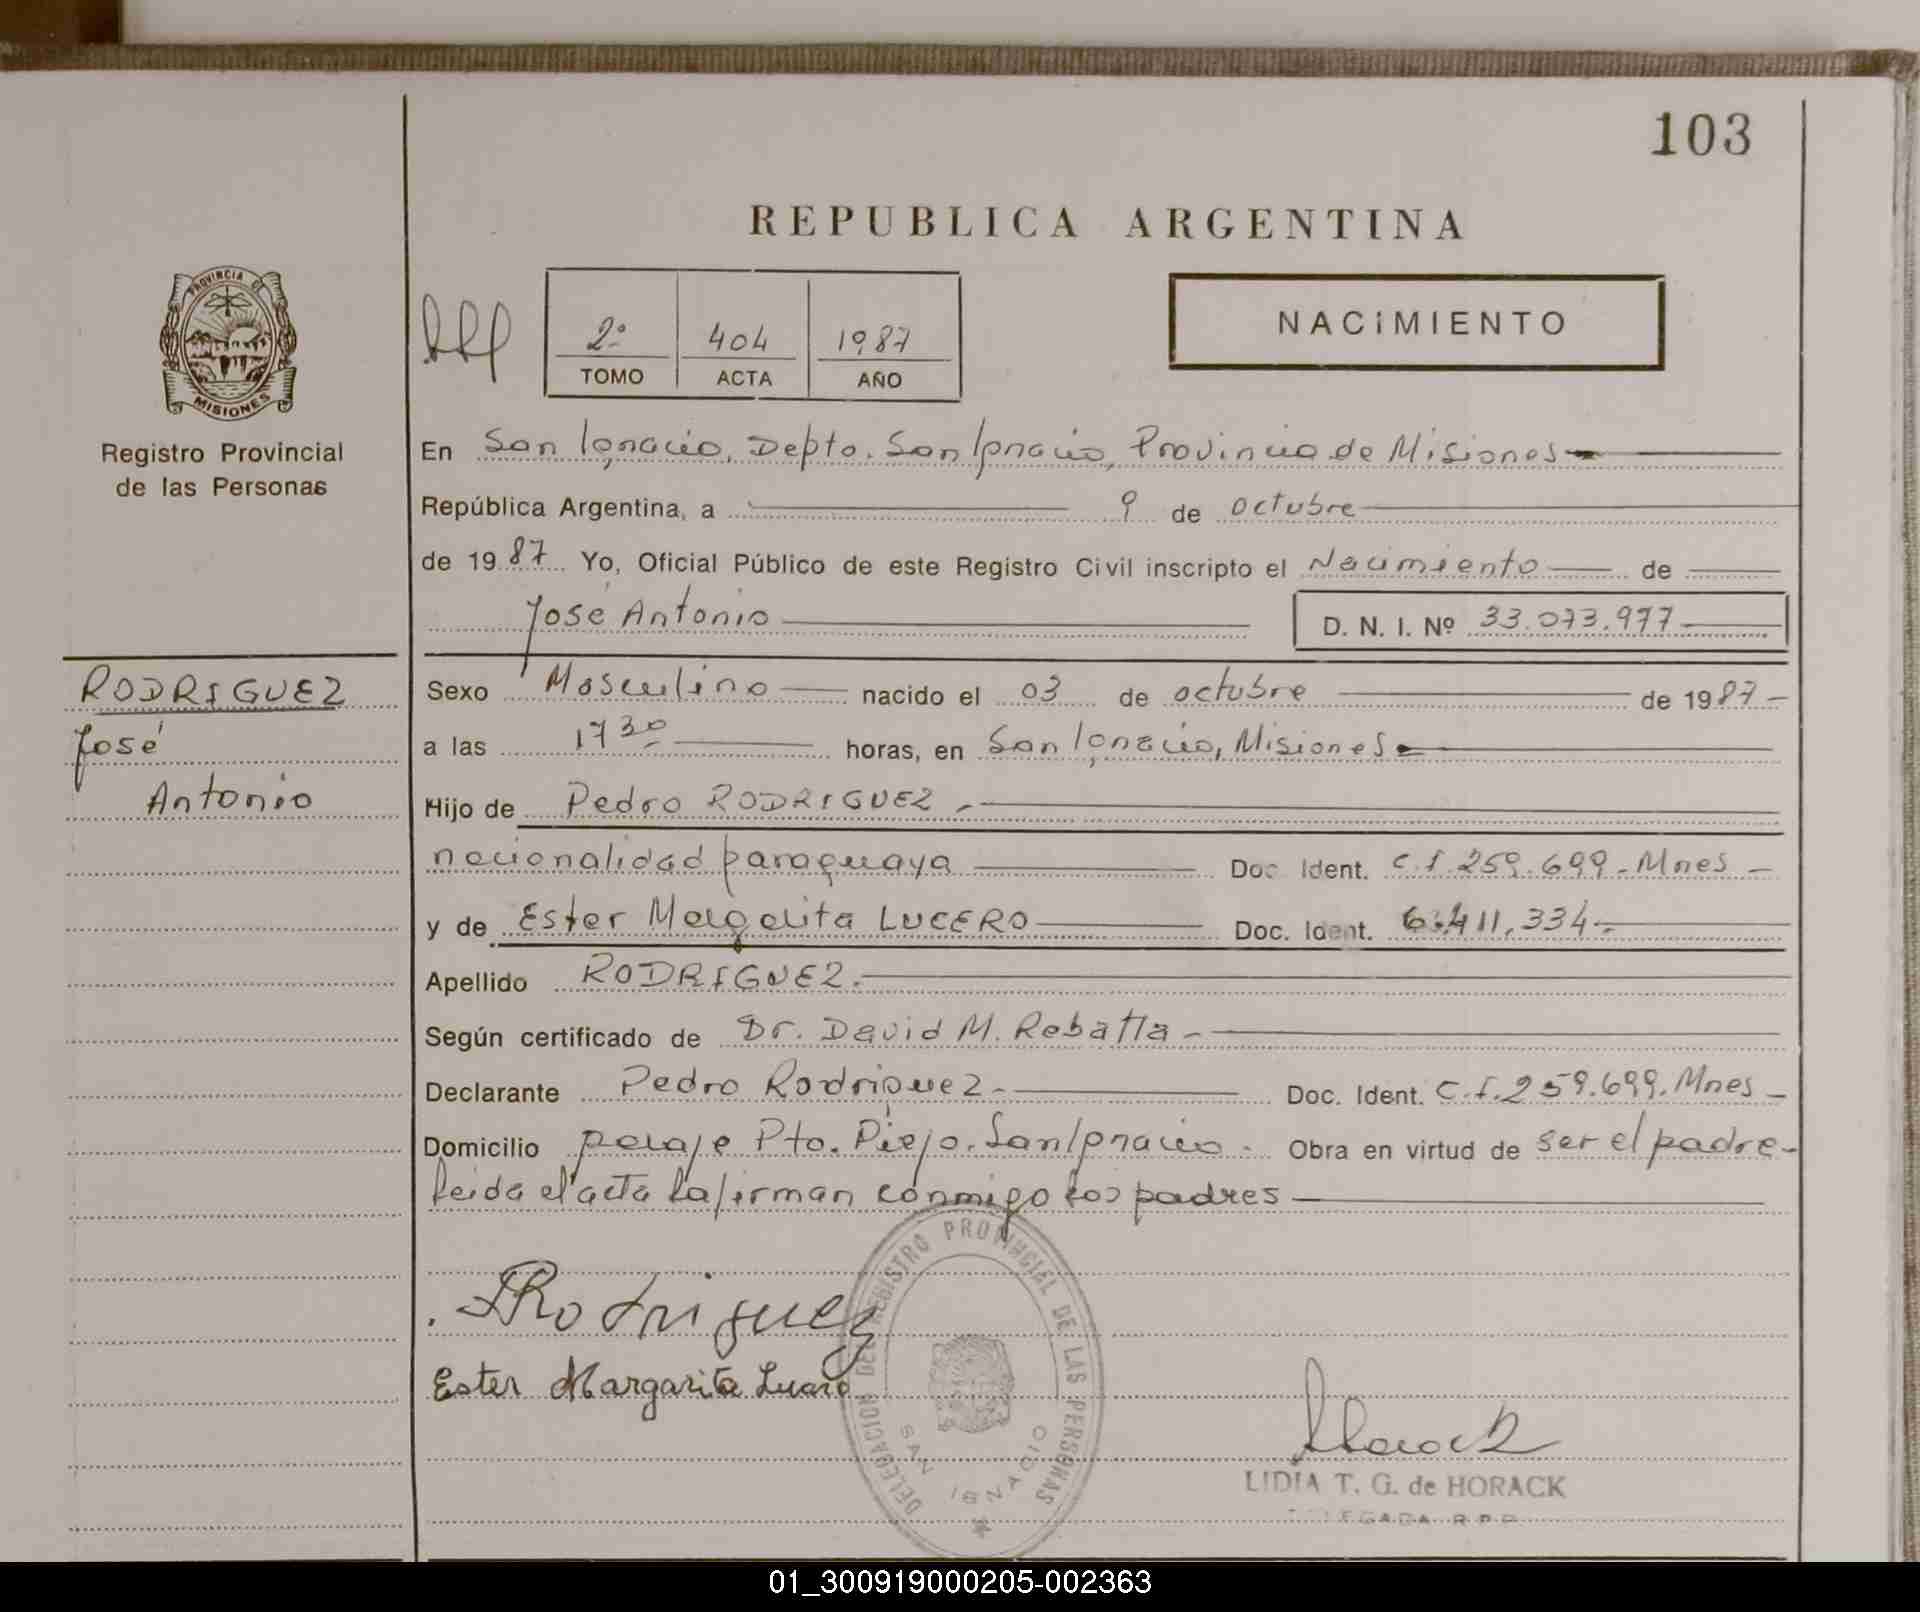 103
REPUBLICA ARGENTINA
PROVINCIA DE
MISIONES
Registro Provincial
de las Personas
2º 404 1987
TOMO ACTA AÑO
NACIMIENTO
En San Ignacio, Depto. San Ignacio, Provincia de Misiones
República Argentina, a 9 de octubre
de 1987 Yo, Oficial Público de este Registro Civil inscripto el Nacimiento de
José Antonio D. N. I. Nº 33.073.977
RODRIGUEZ
José
Antonio
Sexo Masculino nacido el 03 de octubre de 1987-
a las 17 30 horas, en San Ignacio, Misiones
Hijo de Pedro RODRIGUEZ.-
nacionalidad paraguaya Doc. Ident. C.I. 259.699.- Mnes -
y de Ester Margarita LUCERO Doc. Ident. 6.411.334.-
Apellido RODRIGUEZ.-
Según certificado de Dr. David M. Rebatta -
Declarante Pedro Rodriguez.- Doc. Ident. C.I. 259.699. Mnes -
Domicilio paraje Pto. Viejo. San Ignacio. Obra en virtud de ser el padre-
leida el acta la firman conmigo los padres
PRodriguez
Ester Margarita Lucero
DELEGACION DEL REGISTRO PROVINCIAL DE LAS PERSONAS
SAN IGNACIO
LIDIA T. G. de HORACK
DELEGADA R.P.P.
01_300919000205-002363